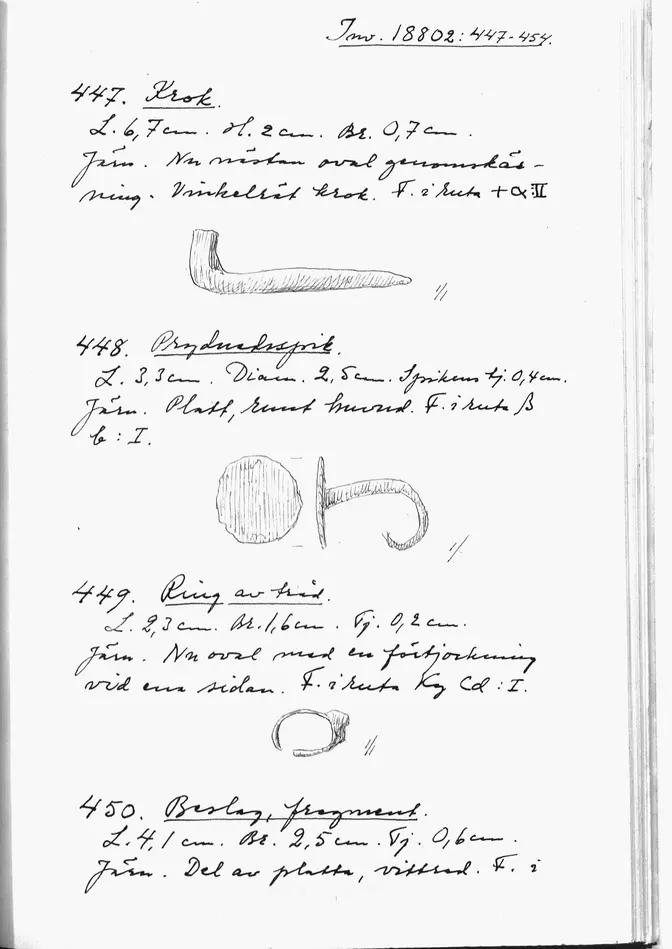 Inv. 18802: 447-454.
447. Krok.
L. 6,7 cm. H. 2 cm. Br. 0,7 cm.
Järn. Nu nästan oval genomskär-
ning. Vinkelrät krok. F. i ruta + α:II
1/1
448. Prydnadsspik.
L. 3,3 cm. Diam. 2,5 cm. Spikens tj. 0,4 cm.
Järn. Platt, runt huvud. F. i ruta β
b : I.
1/1
449. Ring av tråd.
L. 2,3 cm. Br. 1,6 cm. Tj. 0,2 cm.
Järn. Nu oval med en förtjockning
vid ena sidan. F. i ruta Ky Cd : I.
1/1
450. Beslag, fragment.
L. 4,1 cm. Br. 2,5 cm. Tj. 0,6 cm.
Järn. Del av platta, vittrad. F. i